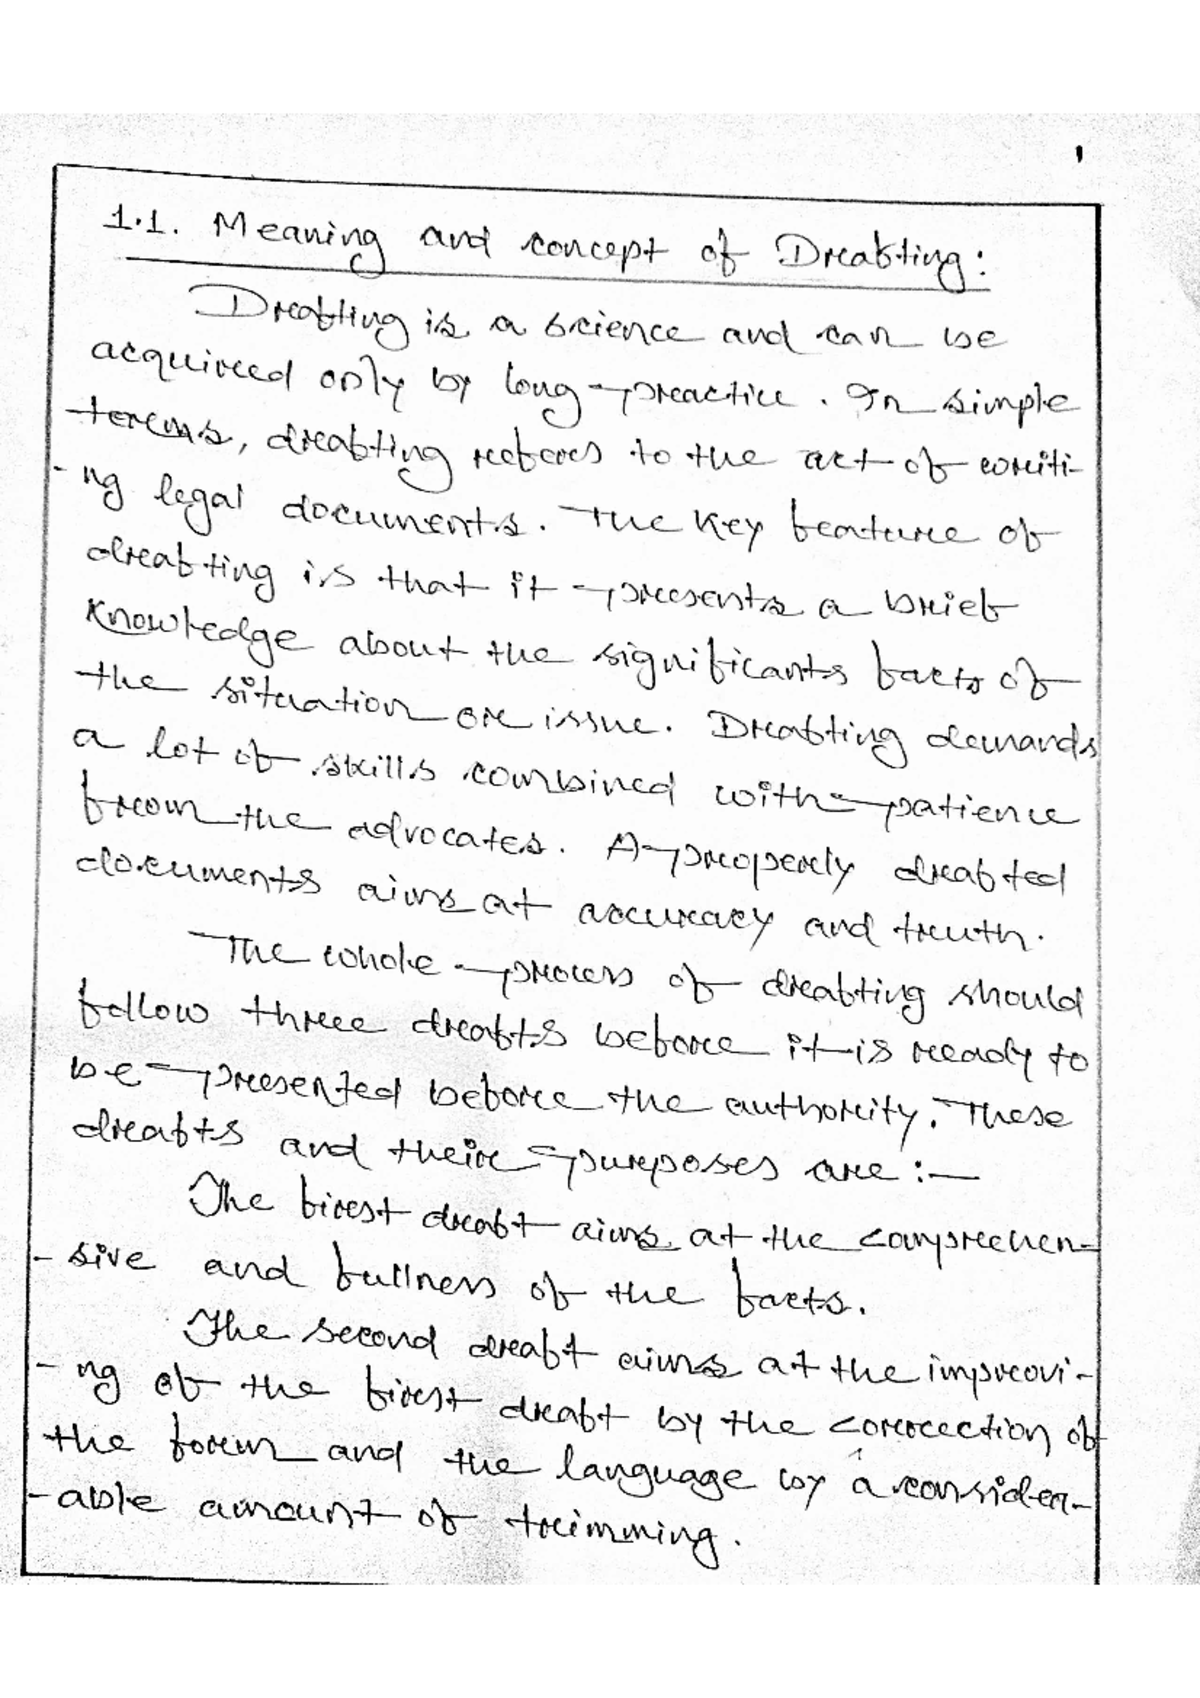 1
1.1. Meaning and concept of Drafting:
Drafting is a science and can be
acquired only by long practice. In simple
terms, drafting refers to the act of writi-
-ng legal documents. The key feature of
drafting is that it presents a brief
knowledge about the significants facts of
the situation or issue. Drafting demands
a lot of skills combined with patience
from the advocates. A properly drafted
documents aims at accuracy and truth.
The whole process of drafting should
follow three drafts before it is ready to
be presented before the authority. These
drafts and their purposes are :—
The first draft aims at the comprehen-
- sive and fullness of the facts.
The second draft aims at the improvi-
- ng of the first draft by the correction of
the form and the language by a consider-
- able amount of trimming.